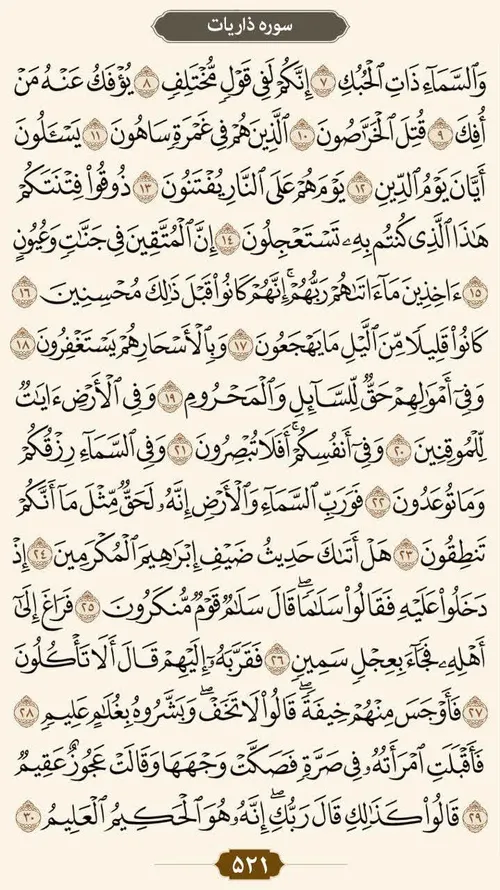 سوره ذاریات
وَٱلسَّمَآءِ ذَاتِ ٱلْحُبُكِ ۝٧ إِنَّكُمْ لَفِى قَوْلٍ مُّخْتَلِفٍ ۝٨ يُؤْفَكُ عَنْهُ مَنْ
أُفِكَ ۝٩ قُتِلَ ٱلْخَرَّٰصُونَ ۝١٠ ٱلَّذِينَ هُمْ فِى غَمْرَةٍ سَاهُونَ ۝١١ يَسْـَٔلُونَ
أَيَّانَ يَوْمُ ٱلدِّينِ ۝١٢ يَوْمَ هُمْ عَلَى ٱلنَّارِ يُفْتَنُونَ ۝١٣ ذُوقُوا۟ فِتْنَتَكُمْ
هَٰذَا ٱلَّذِى كُنتُم بِهِۦ تَسْتَعْجِلُونَ ۝١٤ إِنَّ ٱلْمُتَّقِينَ فِى جَنَّٰتٍ وَعُيُونٍ
۝١٥ ءَاخِذِينَ مَآ ءَاتَىٰهُمْ رَبُّهُمْ ۚ إِنَّهُمْ كَانُوا۟ قَبْلَ ذَٰلِكَ مُحْسِنِينَ ۝١٦
كَانُوا۟ قَلِيلًا مِّنَ ٱلَّيْلِ مَا يَهْجَعُونَ ۝١٧ وَبِٱلْأَسْحَارِ هُمْ يَسْتَغْفِرُونَ ۝١٨
وَفِىٓ أَمْوَٰلِهِمْ حَقٌّ لِّلسَّآئِلِ وَٱلْمَحْرُومِ ۝١٩ وَفِى ٱلْأَرْضِ ءَايَٰتٌ
لِّلْمُوقِنِينَ ۝٢٠ وَفِىٓ أَنفُسِكُمْ ۚ أَفَلَا تُبْصِرُونَ ۝٢١ وَفِى ٱلسَّمَآءِ رِزْقُكُمْ
وَمَا تُوعَدُونَ ۝٢٢ فَوَرَبِّ ٱلسَّمَآءِ وَٱلْأَرْضِ إِنَّهُۥ لَحَقٌّ مِّثْلَ مَآ أَنَّكُمْ
تَنطِقُونَ ۝٢٣ هَلْ أَتَىٰكَ حَدِيثُ ضَيْفِ إِبْرَٰهِيمَ ٱلْمُكْرَمِينَ ۝٢٤ إِذْ
دَخَلُوا۟ عَلَيْهِ فَقَالُوا۟ سَلَٰمًا ۖ قَالَ سَلَٰمٌ قَوْمٌ مُّنكَرُونَ ۝٢٥ فَرَاغَ إِلَىٰٓ
أَهْلِهِۦ فَجَآءَ بِعِجْلٍ سَمِينٍ ۝٢٦ فَقَرَّبَهُۥٓ إِلَيْهِمْ قَالَ أَلَا تَأْكُلُونَ
۝٢٧ فَأَوْجَسَ مِنْهُمْ خِيفَةً ۖ قَالُوا۟ لَا تَخَفْ ۖ وَبَشَّرُوهُ بِغُلَٰمٍ عَلِيمٍ ۝٢٨
فَأَقْبَلَتِ ٱمْرَأَتُهُۥ فِى صَرَّةٍ فَصَكَّتْ وَجْهَهَا وَقَالَتْ عَجُوزٌ عَقِيمٌ
۝٢٩ قَالُوا۟ كَذَٰلِكِ قَالَ رَبُّكِ ۖ إِنَّهُۥ هُوَ ٱلْحَكِيمُ ٱلْعَلِيمُ ۝٣٠
۵۲۱